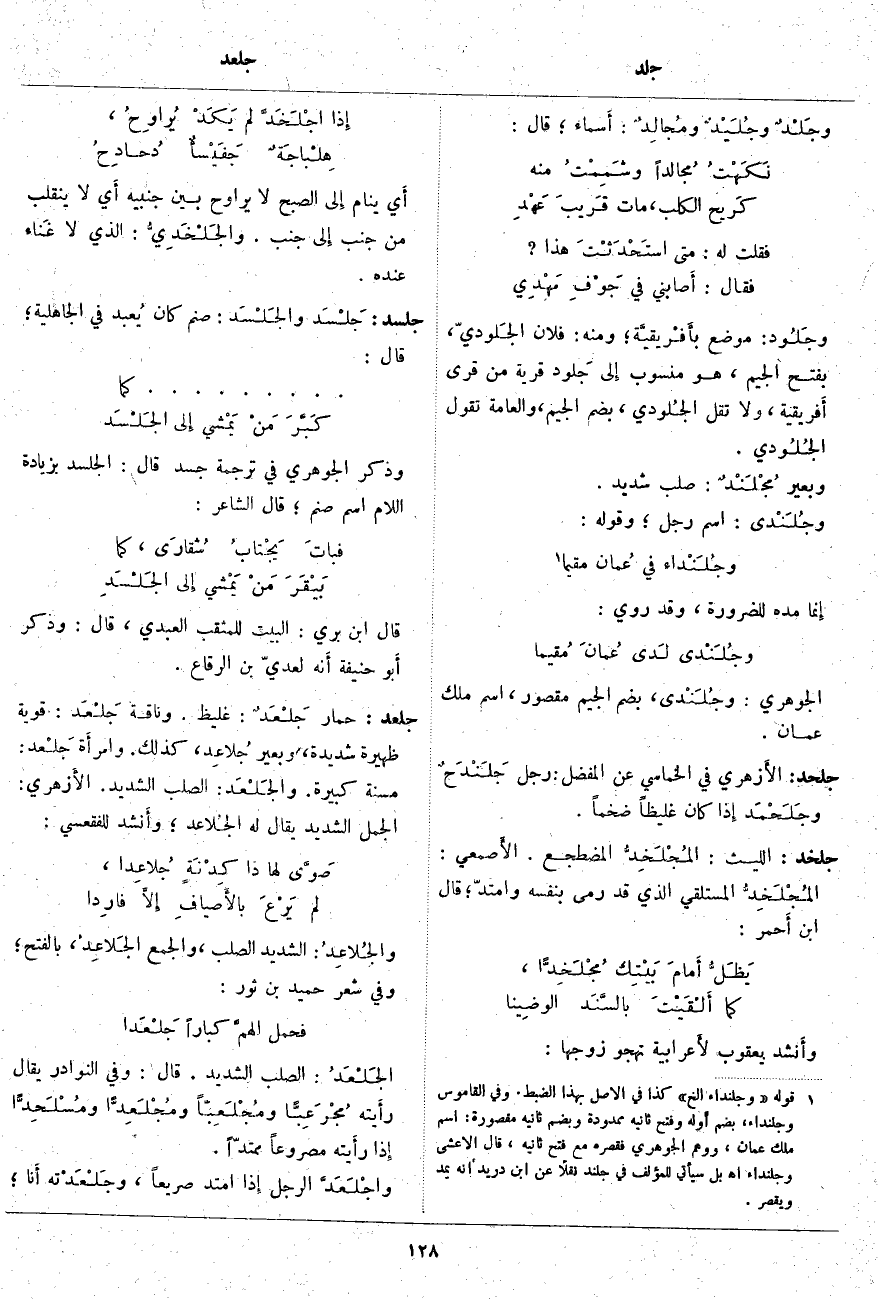 جلد
جلعد
وجَلْدٌ وجُلَيْدٌ ومُجالِدٌ : أَسماء ؛ قال :
نَكَهْتُ مُجالداً وشَمِمْتُ منه
كَريح الكلب، مات قَريبَ عَهْدِ
فقلت له : متى استَحْدَثْتَ هذا ؟
فقال : أَصابني في جَوْفِ مَهْدِي
وجَلُود: موضع بأَفْريقيَّة؛ ومنه: فلان الجَلوديّ،
بفتح الجيم ، هو منسوب إلى جَلود قرية من قرى
أَفريقية ، ولا تقل الجُلودي ، بضم الجيم،والعامة تقول
الجُلُودي .
وبعير مُجْلَنْدٌ : صلب شديد .
وجُلَنْدى : اسم رجل ؛ وقوله :
وجُلَنْداء في عُمان مقيما١
إنما مده للضرورة ، وقد روي :
وجُلَنْدى لَدى عُمانَ مُقيما
الجوهري : وجُلَنْدى، بضم الجيم مقصور، اسم ملك
عمان .
جلحد: الأَزهري في الخماسي عن المفضل: رجل جَلَنْدَحٌ
وجَلَحْمَد إذا كان غليظاً ضخماً .
جلخد : الليث : المُجْلَخِدُّ المضطجع . الأَصمعي :
المُجْلَخِدُّ المستلقي الذي قد رمى بنفسه وامتدّ؛ قال
ابن أَحمر :
يَظَلُّ أَمامَ بَيْتِك مُجْلَخِدًّا ،
كما أَلْقَيْتَ بالسَّنَد الوضِينا
وأَنشد يعقوب لأَعرابية تهجو زوجها :
١ قوله « وجلنداء الخ» كذا في الاصل بهذا الضبط. وفي القاموس
وجلنداء، بضم أوله وفتح ثانيه ممدودة وبضم ثانيه مقصورة: اسم
ملك عمان ، ووهم الجوهري فقصره مع فتح ثانيه ، قال الاعشى
وجلنداء اه بل سيأتي للمؤلف في جلند نقلًا عن ابن دريد أنه يمد
ويقصر .
إذا اجْلَخَدَّ لم يَكَدْ يُراوِحُ ،
هِلْباجَةٌ جَفَيْسَأٌ دُحادِحُ
أَي ينام إلى الصبح لا يراوح بين جنبيه أَي لا ينقلب
من جنب إلى جنب . والجَلَخْدِيُّ : الذي لا غَناء
عنده .
جلسد: جَلْسَد والجَلْسَد : صنم كان يُعبد في الجاهلية؛
قال :
. . . . . . . . . كما
كَبَّرَ مَنْ يَمْشي إلى الجَلْسَد
وذكر الجوهري في ترجمة جسد قال : الجلسد بزيادة
اللام اسم صنم ؛ قال الشاعر :
فباتَ يَجْتابُ شُقارَى ، كما
بَيْقَرَ مَنْ يَمْشي إلى الجَلْسَدِ
قال ابن بري : البيت للمثقب العبدي ، قال : وذكر
أَبو حنيفة أَنه لعديّ بن الرقاع .
جلعد : حمار جَلْعَدٌ : غليظ . وناقة جَلْعَد : قوية
ظهيرة شديدة، وبعير جُلاعِد، كذلك. وامرأَة جَلْعد:
مسنة كبيرة. والجَلْعَد: الصلب الشديد. الأَزهري:
الجمل الشديد يقال له الجُلاعد ؛ وأَنشد للفقعسي :
صَوَّى لها ذا كِدْنَةٍ جُلاعِدا ،
لم يَرْعَ بالأَصيافِ إلاّ فارِدا
والجُلاعِدُ: الشديد الصلب ،والجمع الجَلاعِدُ، بالفتح؛
وفي شعر حميد بن ثور :
فحمل الهمَّ كباراً جَلْعَدا
الجَلْعَدُ : الصلب الشديد . قال : وفي النوادر يقال
رأَيته مُجْرَعِبًّا ومُجْلَعِبًّا ومُجْلَعِدًّا ومُسْلَحِدًّا
إذا رأَيته مصروعاً ممتدّاً .
واجْلَعَدَّ الرجل إذا امتد صريعاً ، وجَلْعَدْته أَنا ؛
١٢٨